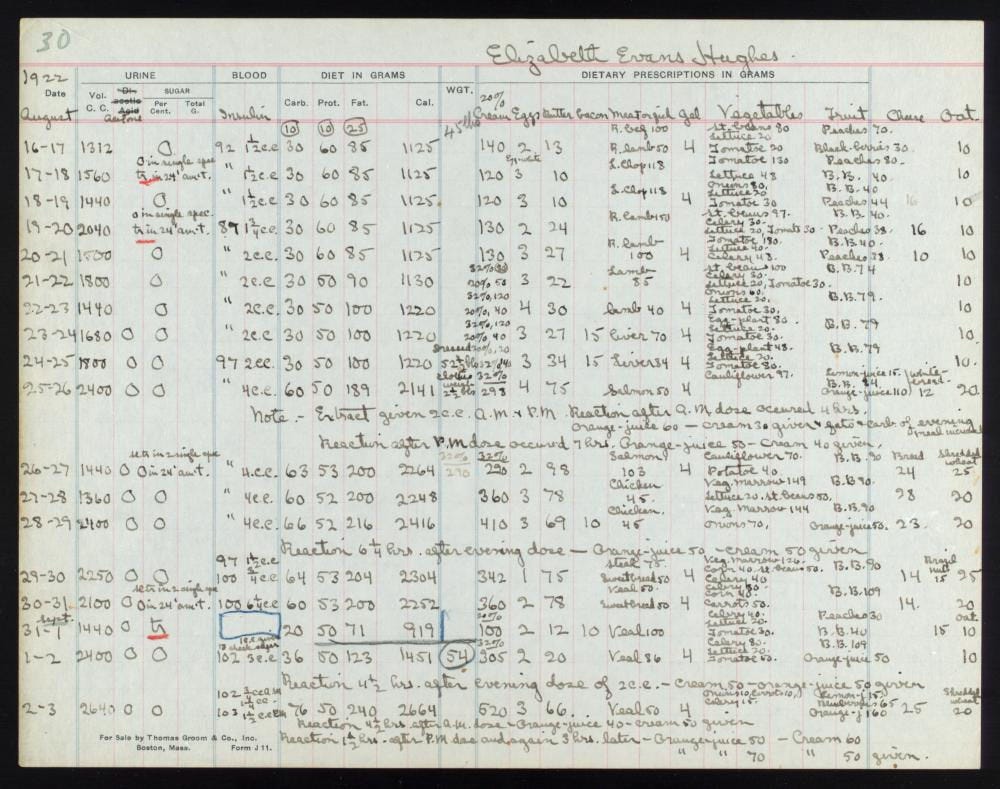 30
Elizabeth Evans Hughes.
1922 URINE BLOOD DIET IN GRAMS WGT. DIETARY PRESCRIPTIONS IN GRAMS
Date Vol. C. C. Di-acetic Acid Acetone SUGAR Per Cent. Total G. Insulin Carb. Prot. Fat. Cal. 20% Cream Eggs Butter Bacon Meat or fish gel Vegetables Fruit Cheese Oat.
August 10 10 25 45 lbs R. Beef 100 St. beans 80 Peaches 70.
16-17 1312 0 92 1½c.c 30 60 85 1125 140 2 13 R. lamb 50 4 Lettuce 20 Tomatoe 20 Black-berries 30 10
0 in single spec. Egg-white L. Chop 118 Tomatoe 130 Peaches 80
17-18 1560 tr. in 24° am't. " ½c.c 30 60 85 1125 120 3 10 Lettuce 48 B.B. 40. 10
Onions 80, B.B. 40
18-19 1440 0 " ½c.c 30 60 85 1125 120 3 10 L. Chop 118 4 Lettuce 20 Tomatoe 30 Peaches 44 16 10
0 in single spec. R. lamb 50 St. beans 97. B.B. 40.
19-20 2040 tr. in 24° am't. 89 30 60 85 1125 130 2 24 Celery 30. Lettuce 20, Tomato 30 Peaches 38. 16 10
Tomatoe 180. B.B. 40.
20-21 1500 0 " 2c.c. 30 60 85 1125 130 3 27 R. lamb 100 4 Lettuce 40. Celery 48. Peaches 38 10 10
32% 30 St. beans 100 B.B. 74
21-22 1800 0 " 2c.c. 30 50 90 1130 20% 50 3 22 Lamb 85 Celery 30. Lettuce 20, Tomatoe 30. 10
32%, 120 Onions 60.
22-23 1440 0 " 2c.c. 30 50 100 1220 20%, 40 4 30 Lamb 40 4 Lettuce 20, Tomatoe 30, B.B. 79. 10
32%, 120 Egg-plant 80.
23-24 1680 0 0 " 2c.c 30 50 100 1220 20%, 40 3 27 15 Liver 70 4 Lettuce 20. Tomatoe 30. B.B. 79 10
Dressed 20%, 20 Egg-plant 48. B.B. 79
24-25 1800 0 0 97 2cc. 30 50 100 1220 52½ lbs 3 34 15 Liver 34 4 Lettuce 20. Tomatoe 80. 10.
clothes weigh 32% Cauliflower 97. Lemon-juice 15. White-bread.
25-26 2400 0 0 " 4c.c. 60 50 189 2141 2½ lbs 298 4 75 Salmon 50 4 B.B. 84 Orange-juice 110 12 20
Note.- Extract given 2c.c. A.M. & P.M. Reaction after A.M. dose occured 4 hrs.
Orange-juice 60 - cream 30 given & fats & carb. of evening meal increased
Reaction after P.M. dose occured 7 hrs. Orange-juice 50 - Cream 40 given.
32% 32% Salmon Cauliflower 70. B.B. 90 Bread Shredded wheat
26-27 1440 0 0 in 24° am't. " 4.c.c. 63 53 200 2264 290 290 2 98 103 4 Potatoe 40 24 25
Chicken Veg. Marrow 149 B.B. 90.
27-28 1360 0 0 " 4c.c. 60 52 200 2248 360 3 78 45. Lettuce 20. St. beans 50, 28 20
Chicken. Veg. Marrow 144 B.B. 90
28-29 2400 0 0 " 4c.c. 66 52 216 2416 410 3 69 10 45 Onions 70, Orange-juice 50. 23. 20
Reaction 6¼ hrs. after evening dose - Orange-juice 50 - cream 50 given
97 1½c.c Steak 75. Veg. Marrow 126. B.B. 90 Brazil nut
29-30 2250 0 0 100 4c.c 64 53 204 2304 342 1 75 Sweetbread 50 4 Corn 40. St. beans 50. Celery 40 14 15 25
Veal 50. Celery 80. Corn 40. B.B. 109
30-31 2100 0 0 in 24° am't. 100 6½c.c 60 53 200 2252 360 2 78 Sweetbread 50 4 Carrots 50. 14. 20
Sept. 20% Celery 40. Lettuce 20. Peaches 30 Oat.
31-1 1440 0 tr. 20 50 71 919 100 2 12 10 Veal 100 Tomatoe 30. B.B. 40 15 10
32% Celery 80. B.B. 109
1-2 2400 0 0 102 3c.c. 36 50 123 1451 54 305 2 20 Veal 86 4 Lettuce 20. Tomatoe 50. Orange-juice 50 10
Reaction 4½ hrs. after evening dose of 2c.c. - cream 50 - orange-juice 50 given
102 Onions 10, Carrots 10, Celery 15. Lemon-j 15. Blueberries 65 Shredded wheat
2-3 2640 0 0 103 76 50 240 2664 520 3 66. Veal 50 4 Orange-j 160 25 20
Reaction 4½ hrs. after A.M. dose - Orange-juice 40 - cream 50 given
Reaction 1½ hrs. after P.M. dose and again 3 hrs. later - Orange-juice 50 - Cream 60
" " 70 " 50 given.
For Sale by Thomas Groom & Co., Inc.
Boston, Mass. Form J 11.